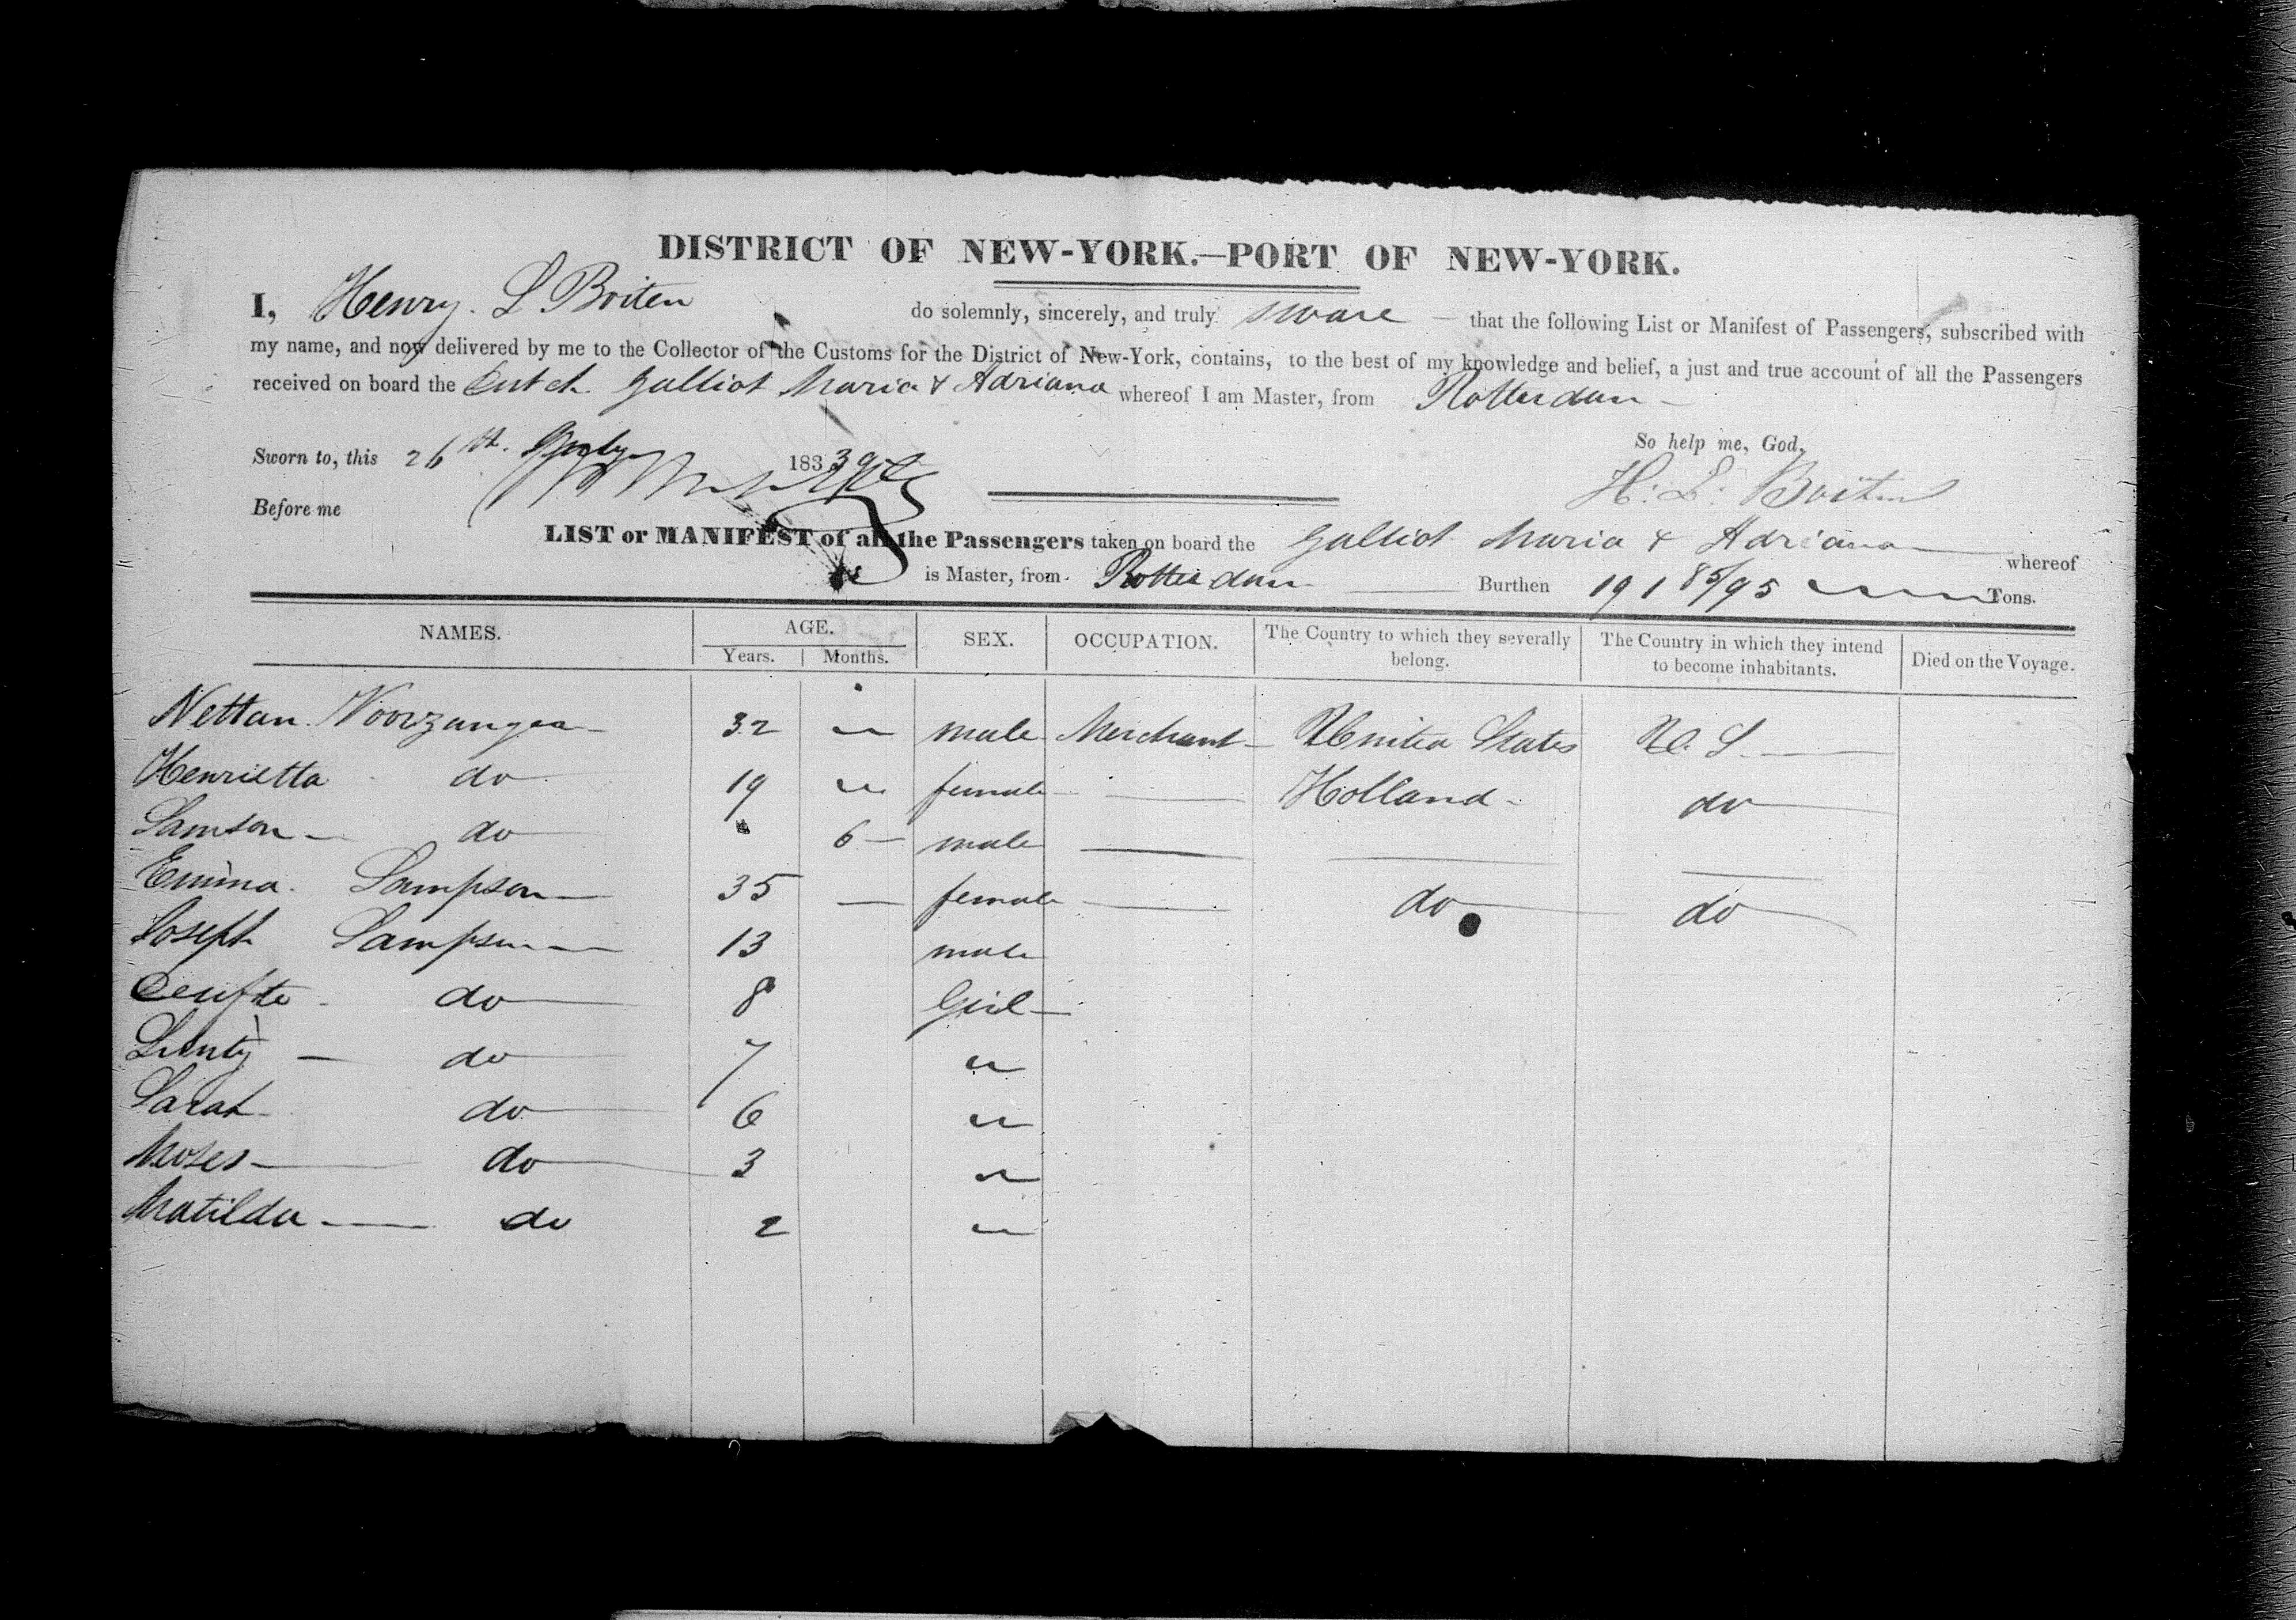 DISTRICT OF NEW-YORK.—PORT OF NEW-YORK.
I, Henry. L Boiten do solemnly, sincerely, and truly sware — that the following List or Manifest of Passengers, subscribed with
my name, and now delivered by me to the Collector of the Customs for the District of New-York, contains, to the best of my knowledge and belief, a just and true account of all the Passengers
received on board the Dutch Galliot Maria & Adriana whereof I am Master, from Rotterdam —
So help me, God,
Sworn to, this 26th. 183
H: L: Boiten
Before me
LIST or MANIFEST of all the Passengers taken on board the Galliot Maria & Adriana — whereof
is Master, from Rotterdam — Burthen 191 85/95 Tons.
NAMES. AGE. SEX. OCCUPATION. The Country to which they severally belong. The Country in which they intend to become inhabitants. Died on the Voyage.
Years. Months.
Nettan 32 male Merchant — United States U. S —
Henrietta do 19 female — Holland — do
Samson — do 6 — male — — —
Emma. Sampson — 35 — female — do do
Joseph Sampson — 13 male
do 8 Girl —
— do 7 "
Sarah do 6 "
Moses — do 3 "
Matilda — do 2 "